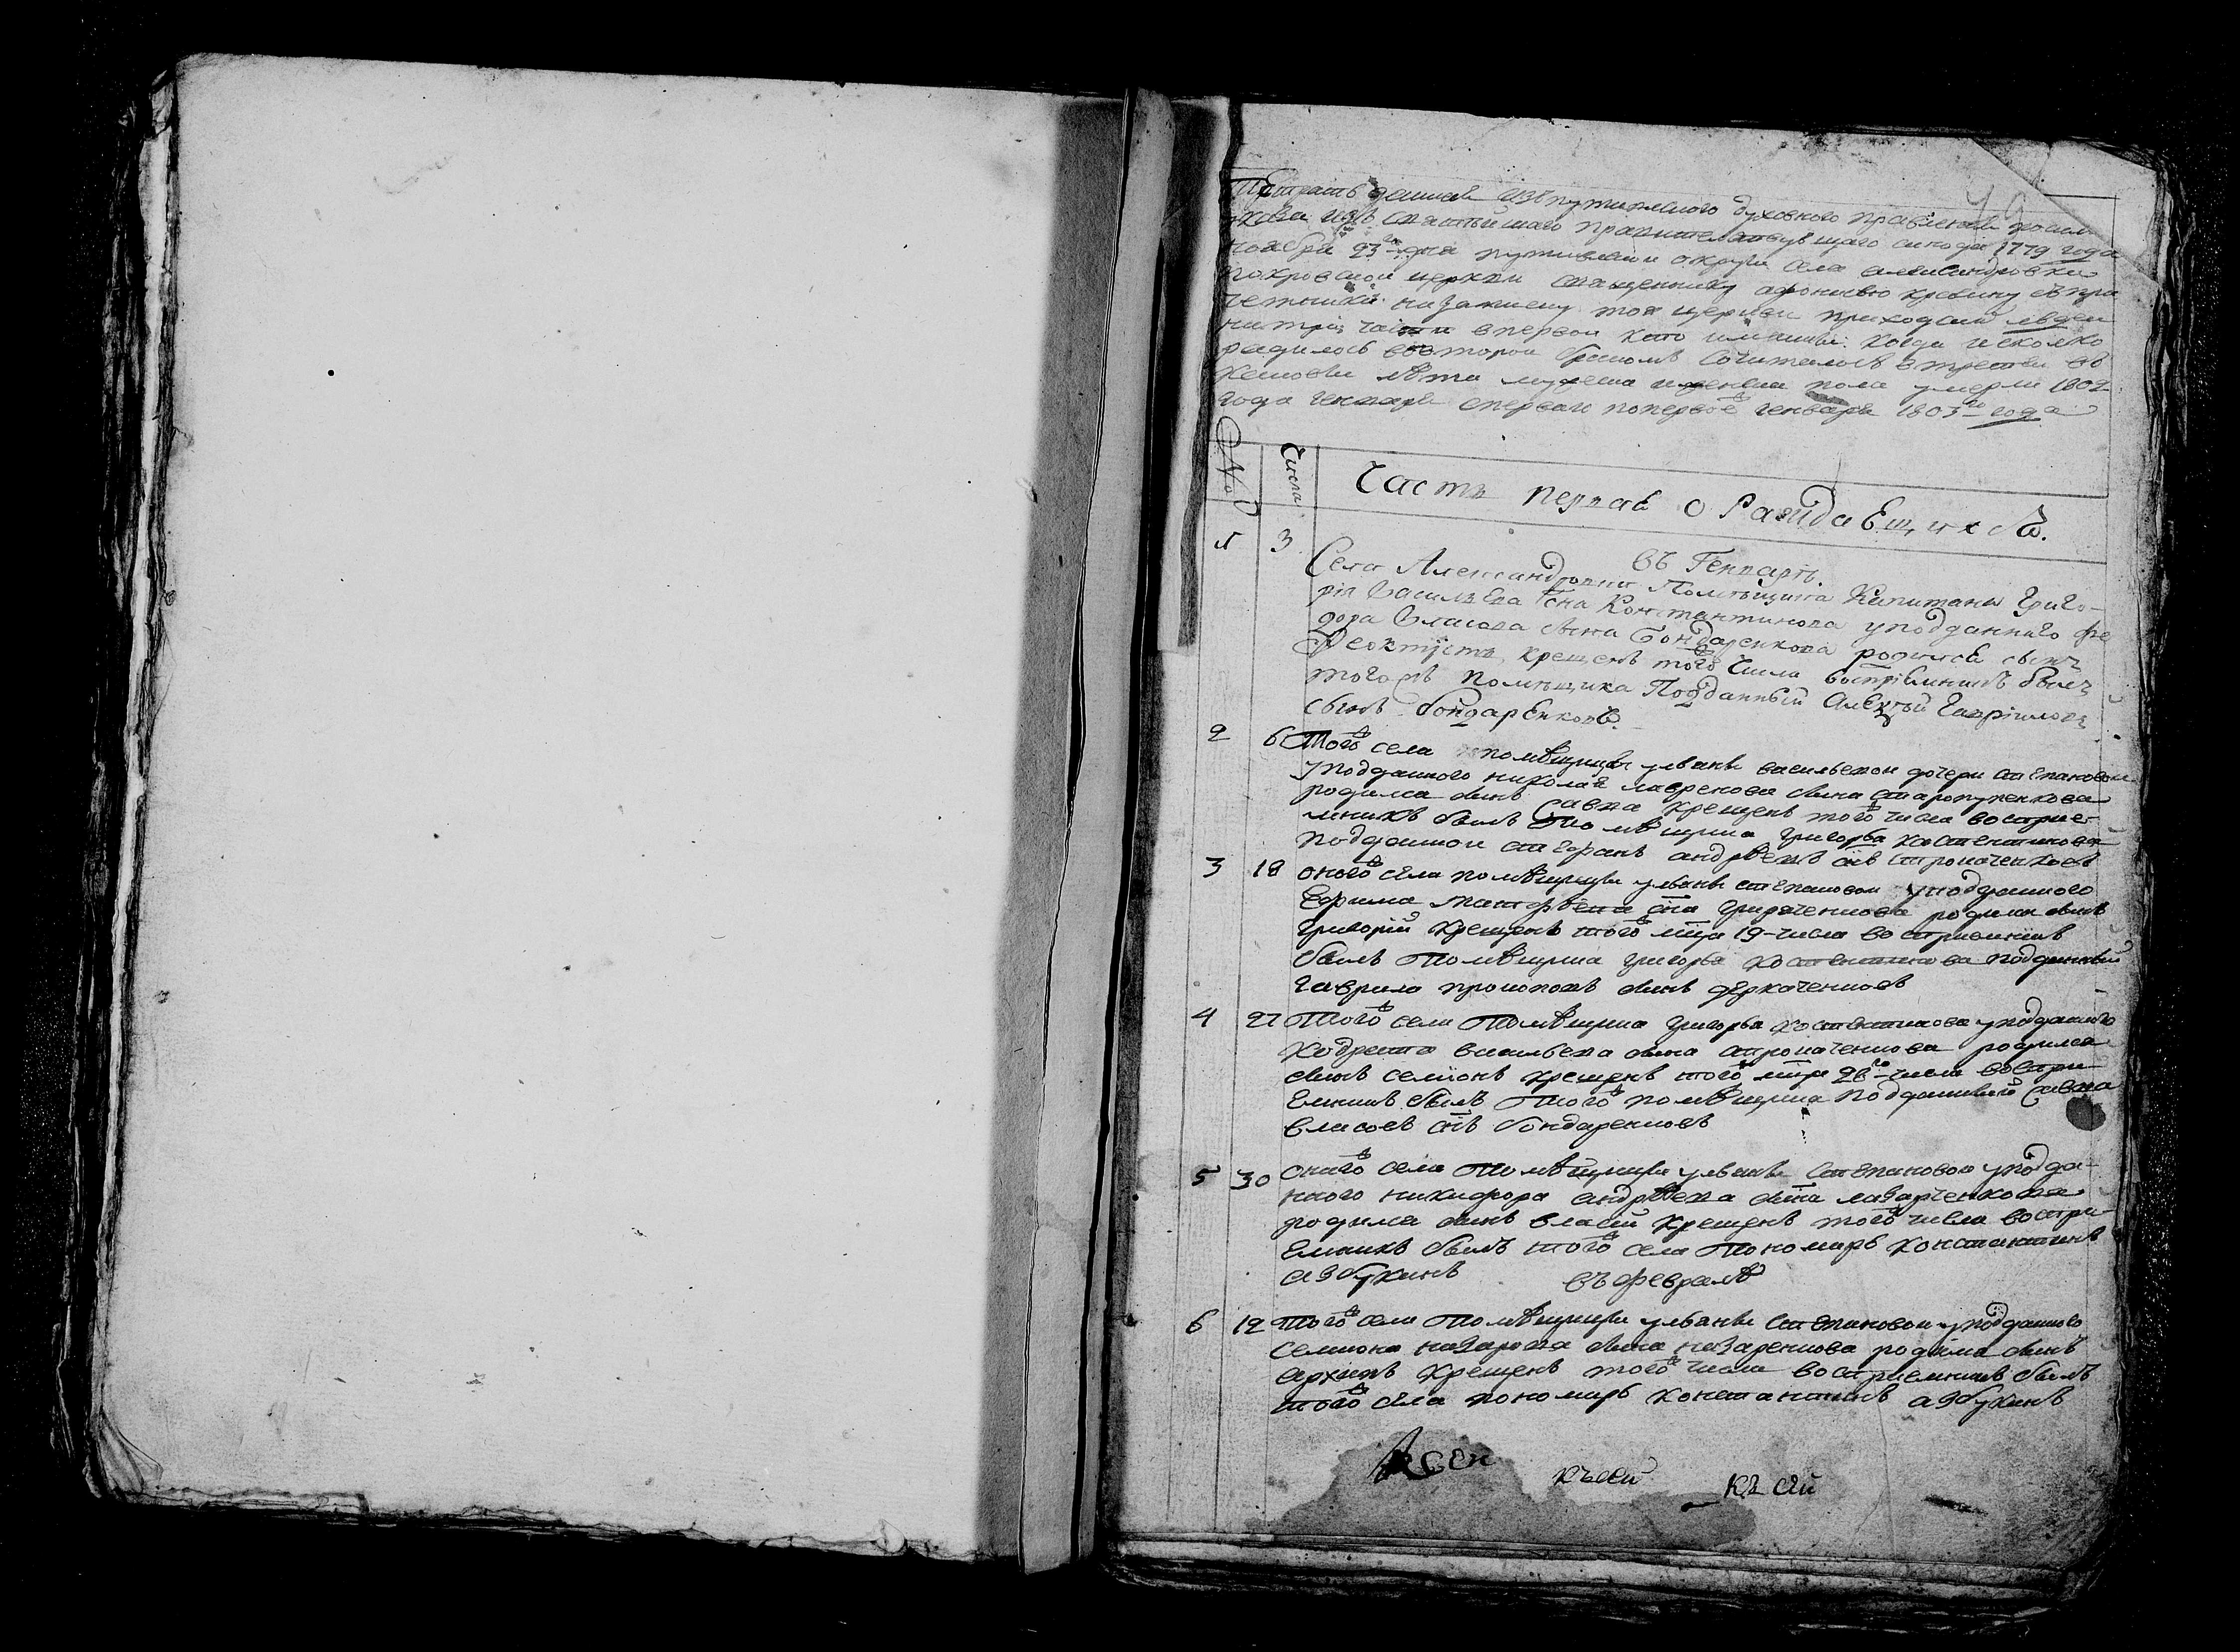 Тетрать данная изъ путивлского духовного правления посил
указа изъ святейшаго правителствующаго синода 1779 года
ноября 23го дня путивлской округи села александровки
покровской церкви священнику афонасью с при
четники на записку тоя церкви приходских людей
на три части в первой кто имянны когда и сколко
родилось во второй браком сочиталось в третей
лета мужеска и женска пола умерли 1802
года генваря с перваго по первое генваря 1803го года
№ Числа Часть первая о Раждающихся.
въ Генваре.
1 3 Села Александровки Помещика Капитана Григо-
рія Васильева сна Константинова у подданнаго Фе
дора Власова сына Бондаренкова родился сынъ
Феоктистъ, крещенъ того числа воспріемникъ былъ
того жъ помещика Подданный Алексей Гаврилов
сынъ бондаренковъ.
2 6 Того села помѣщицы ульяны васильевой дочери степановой
у подданного николая лавренова сына
родился сынъ Савва крещенъ того числа восприе-
мникъ былъ помѣщика григорья костентинова
подданной стефанъ андрѣевъ снъ строгаченковъ
3 18 оного села помѣщицы ульяны степановой у подданного
Ефима матфѣева сна родился сынъ
григорий крещенъ того мца 19 числа восприемникъ
былъ помѣщика григорья костентинова подданный
гаврило прокоповъ сынъ деркаченковъ
4 27 Того села помѣщика григорья костентинова у подданного
кодрата васильева сына строгаченкова родился
сынъ семионъ крещенъ того мца 28го числа воспри-
емникъ былъ того помѣщика подданный савва
власовъ снъ бондаренковъ
5 30 оного села помѣщицы ульяны степановой у подда-
нного никифора андрѣева сына лазарченкова
родился сынъ власий крещенъ того числа воспри-
емникъ былъ того села пономарь константинъ
азбукинъ
въ февралѣ
6 12 того села помѣщицы ульяны степановой у подданного
семиона назарова сына назаренкова родился сынъ
архипъ крещенъ того числа восприемникъ былъ
того села пономарь константинъ азбукинъ
къ сей къ сей